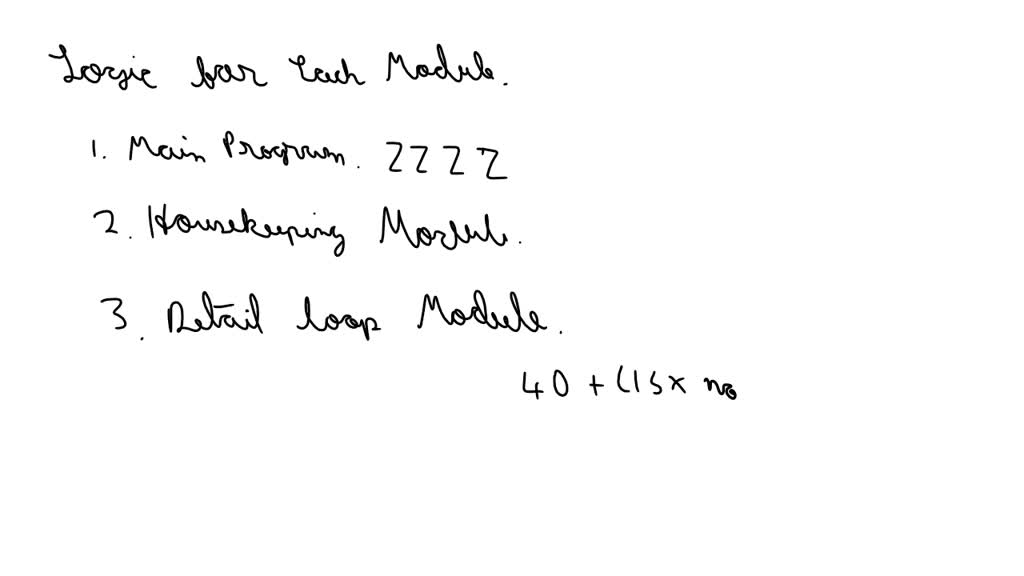 Logic for Each Module.
1. Main Program. ZZZZ
2. Housekeeping Module.
3. Detail loop Module.
40 + (15x no